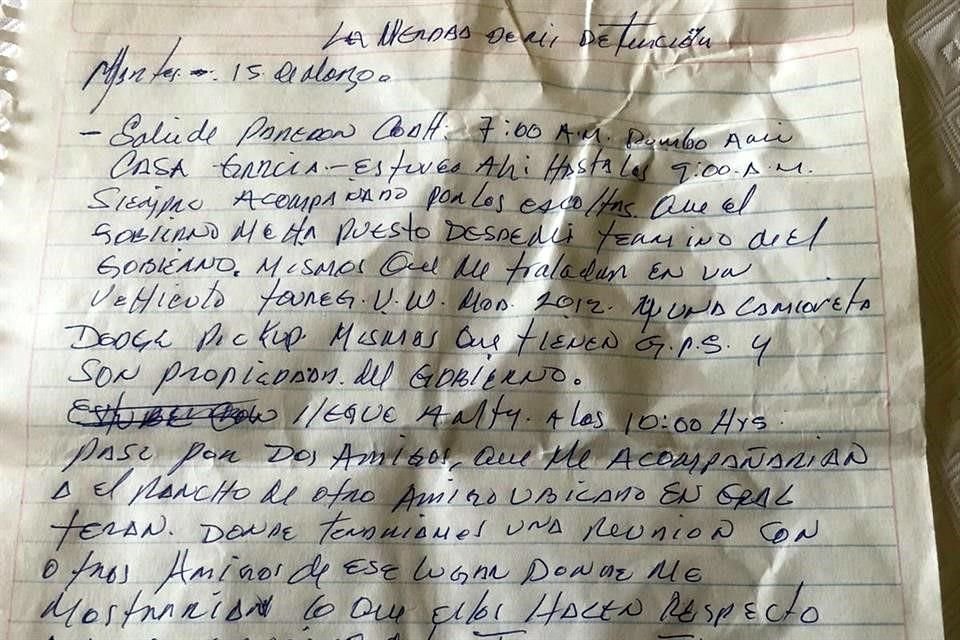 LA VERDAD DE MI DETENCIÓN
Martes. 15 de Marzo.
- Sali de PAREDON COAH. 7:00 A.M. Rumbo A mi
CASA GARCIA - ESTUVE AHI HASTA LAS 9:00 A.M.
SIEMPRE ACOMPAÑADO POR LOS ESCOLTAS. QUE EL
GOBIERNO ME HA PUESTO DESDE MI TERMINO DEL
GOBIERNO. MISMOS QUE ME trasladan EN UN
VEHICULO TOUREG. V.W. MOD. 2012. Y UNA CAMIONETA
DODGE PICKUP. MISMAS QUE TIENEN G.P.S. Y
SON PROPIEDAD. DEL GOBIERNO.
llEGUE A MTY. A LAS 10:00 Hrs.
PASE POR DOS AMIGOS, QUE ME ACOMPAÑARIAN
A EL RANCHO DE OTRO AMIGO UBICADO EN GRAL
TERAN. DONDE TENDRIAMOS UNA REUNION CON
OTROS AMIGOS DE ESE LUGAR DONDE ME
MOSTRARIAN lo QUE Ellos HACEN RESPECTO